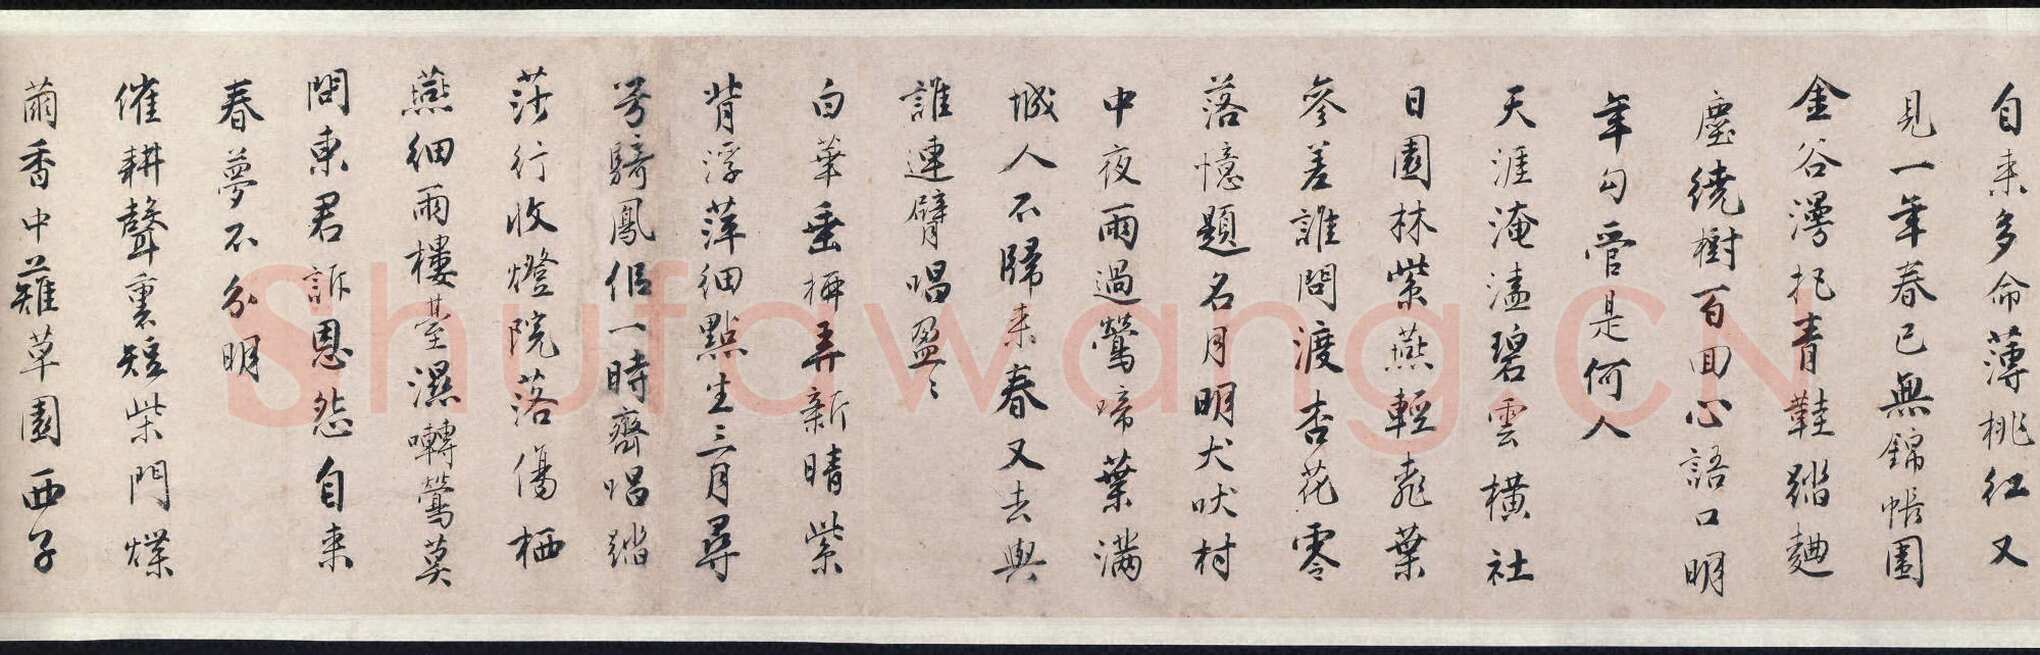 自来多命薄桃红又
見一年春已無錦帳圍
金谷漫把青鞋踏麯
塵繞樹百回心語口明
年勾管是何人
天涯淹溘碧雲橫社
日園林紫燕輕飛葉
參差誰問渡杏花零
落憶題名月明犬吠村
中夜雨過鶯啼葉滿
城人不歸来春又去與
誰連臂唱盈〻
白華垂柳弄新晴紫
背浮萍細點生三月尋
芳騎鳳侶一時齊唱踏
莎行收燈院落傷栖
燕細雨樓臺濕囀鶯莫
問東君訴恩怨自来
春夢不分明
催耕聲裏短柴門煠
繭香中薙草園西子
Shufawang.CN